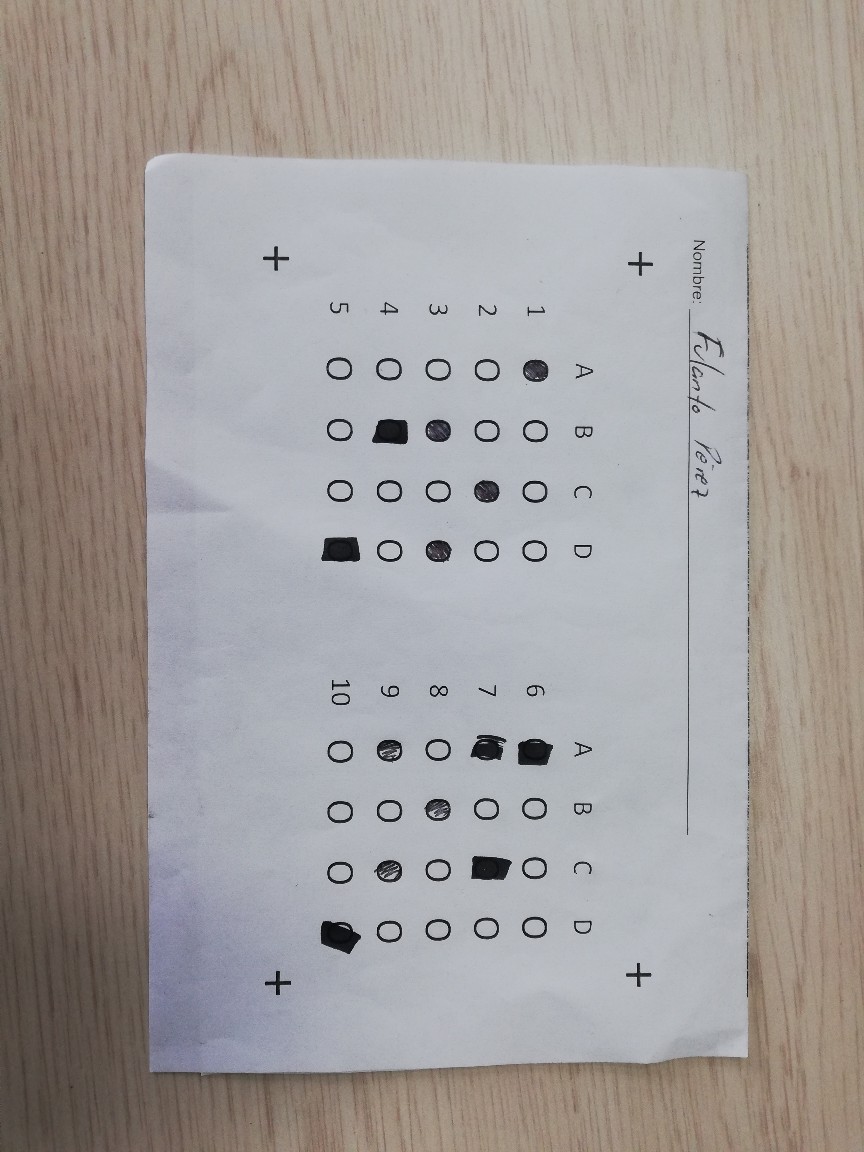 Nombre: Fulanto Pérez
A B C D
1 O O O
2 O O O
3 O O
4 O O O
5 O O O
A B C D
6 O O O
7 O O
8 O O O
9 O O
10 O O O